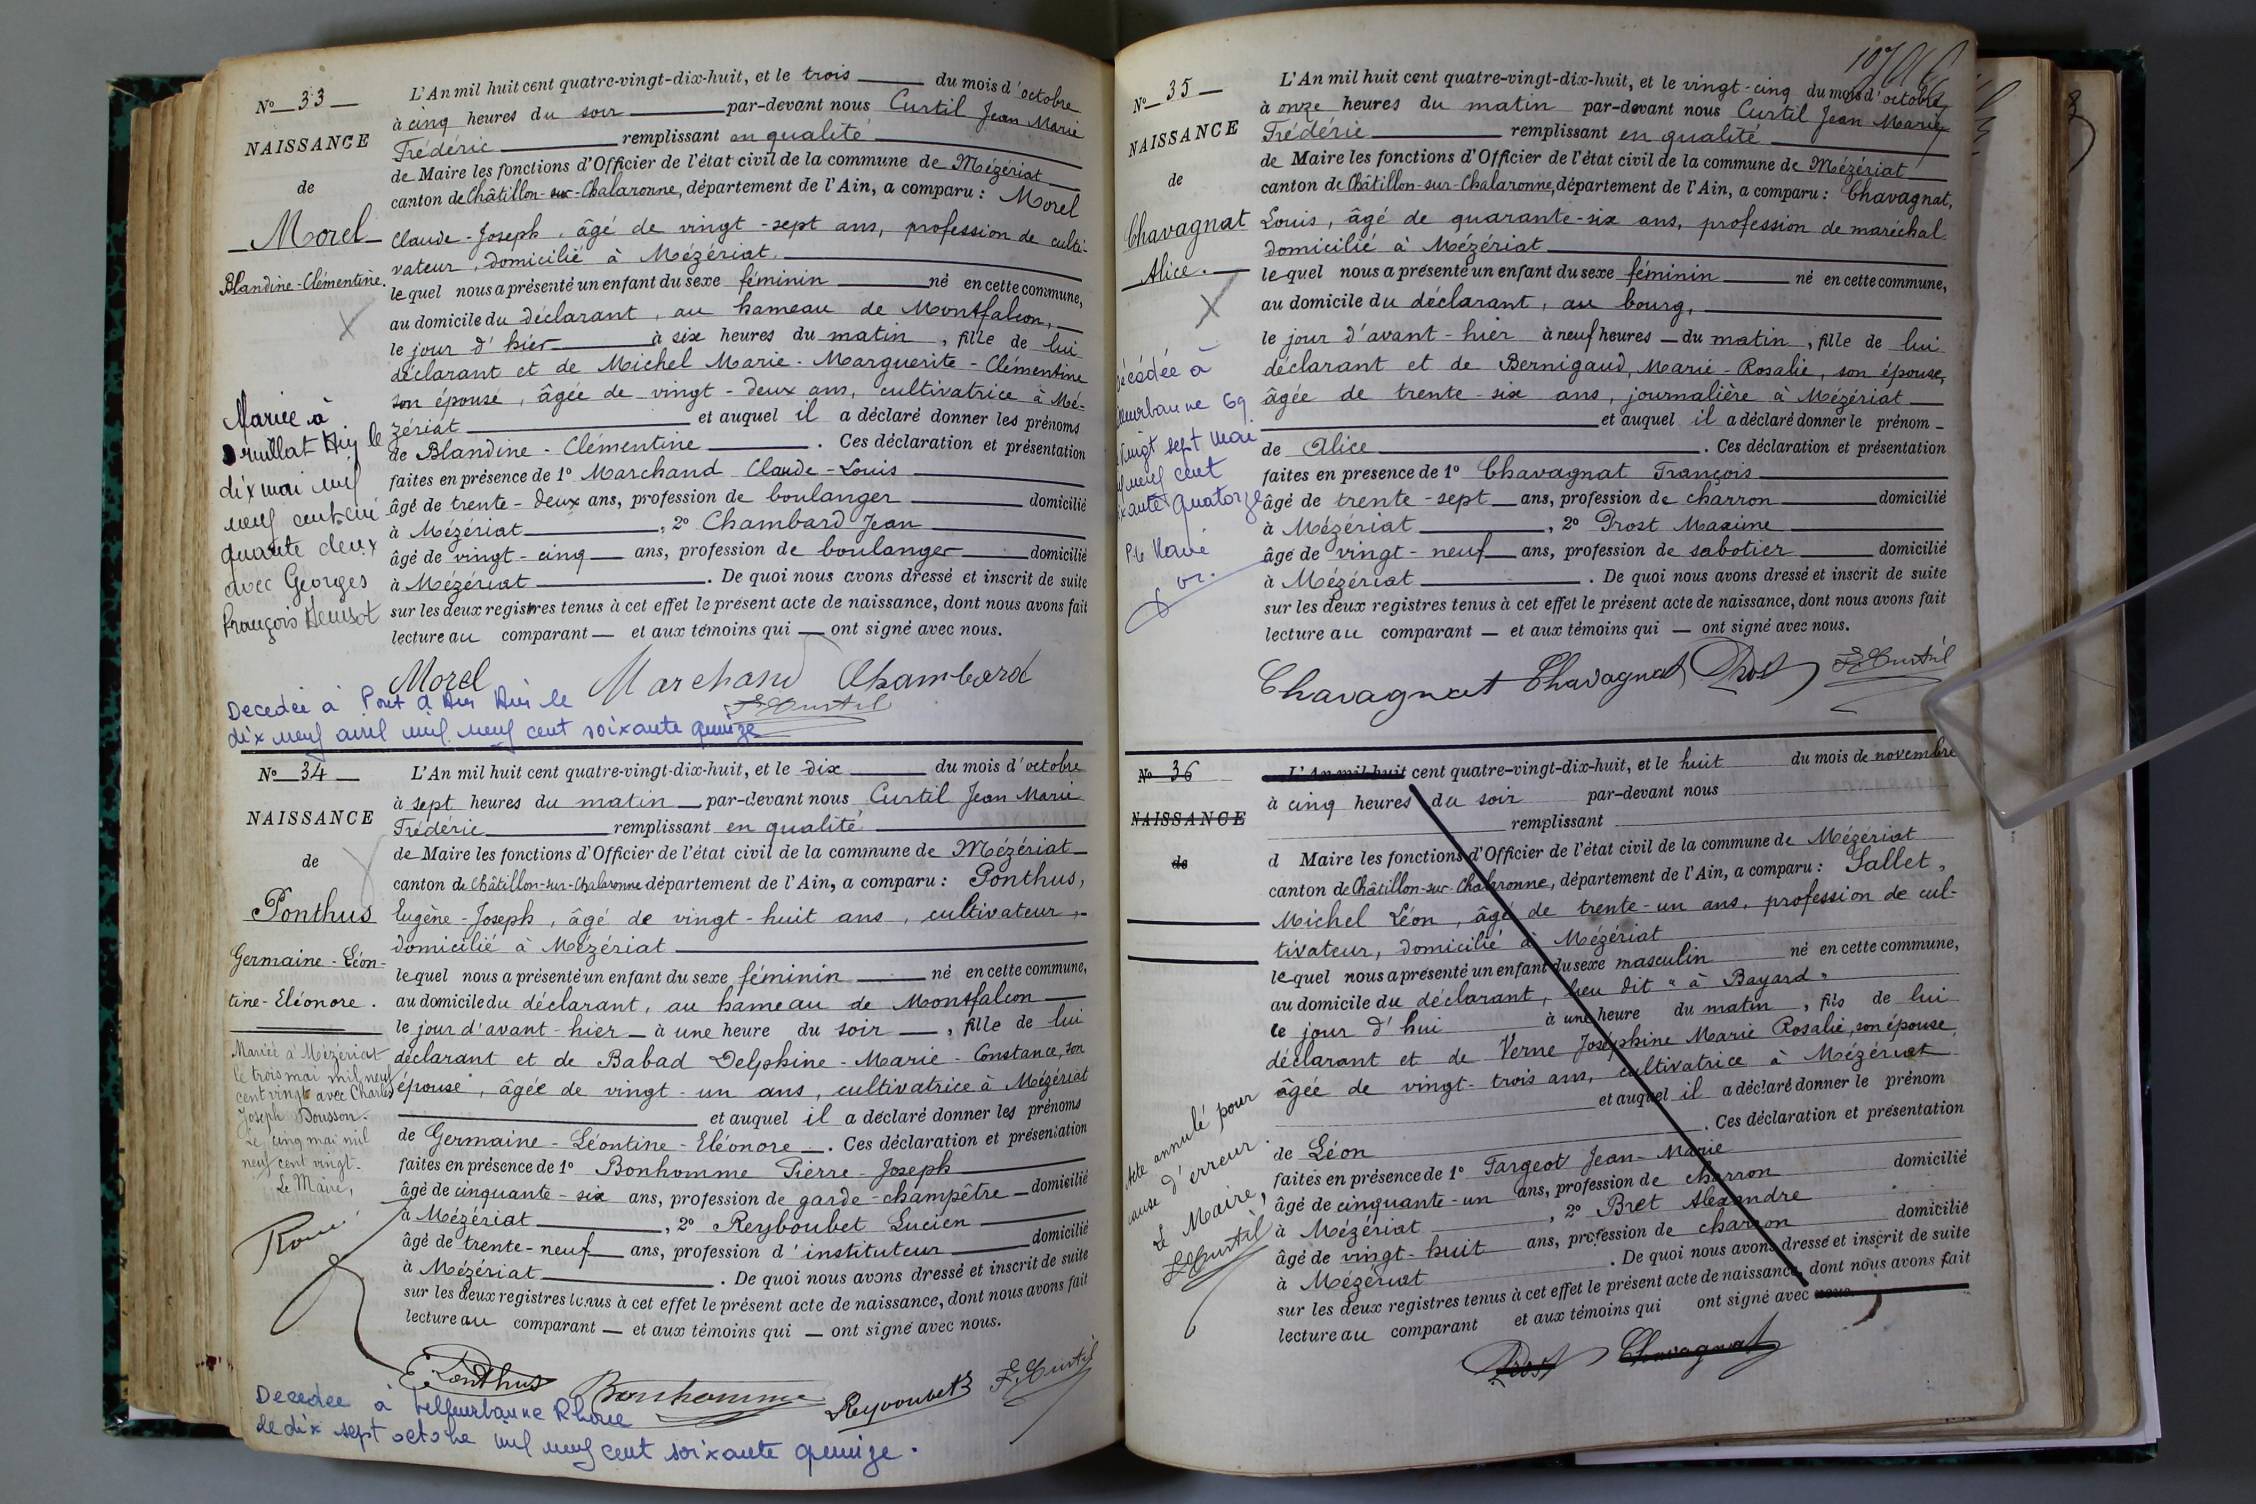 N° 33
NAISSANCE
de
Morel
Blandine-Clémentine.
Mariée à
Druillat Ain le
dix mai mil
neuf cent cin
quante deux
avec Georges
François
L'An mil huit cent quatre-vingt-dix-huit, et le trois du mois d'octobre
à cinq heures du soir par-devant nous Curtil Jean Marie
Frédéric remplissant en qualité
de Maire les fonctions d'Officier de l'état civil de la commune de Mézériat
canton de Châtillon-sur-Chalaronne, département de l'Ain, a comparu : Morel
Claude-Joseph, âgé de vingt-sept ans, profession de culti-
vateur, domicilié à Mézériat.
lequel nous a présenté un enfant du sexe féminin né en cette commune,
au domicile du déclarant, au hameau de Montfalcon,
le jour d'hier à six heures du matin, fille de lui
déclarant et de Michel Marie-Marguerite-Clémentine
son épouse, âgée de vingt-deux ans, cultivatrice à Mé-
zériat et auquel il a déclaré donner les prénoms
de Blandine-Clémentine. Ces déclaration et présentation
faites en présence de 1° Marchand Claude-Louis
âgé de trente-deux ans, profession de boulanger domicilié
à Mézériat, 2° Chambard Jean
âgé de vingt-cinq ans, profession de boulanger domicilié
à Mézériat. De quoi nous avons dressé et inscrit de suite
sur les deux registres tenus à cet effet le présent acte de naissance, dont nous avons fait
lecture au comparant — et aux témoins qui — ont signé avec nous.
Morel Marchand Chambard
F. Curtil
Decedée à Pont d'Ain Ain le
dix neuf avril mil neuf cent soixante quinze
N° 34
NAISSANCE
de
Ponthus
Germaine-Léon-
tine-Eléonore.
Mariée à Mézériat
le trois mai mil neuf
cent vingt avec Charles
Joseph Bousson.
Le cinq mai mil
neuf cent vingt.
Le Maire,
L'An mil huit cent quatre-vingt-dix-huit, et le dix du mois d'octobre
à sept heures du matin par-devant nous Curtil Jean Marie
Frédéric remplissant en qualité
de Maire les fonctions d'Officier de l'état civil de la commune de Mézériat
canton de Châtillon-sur-Chalaronne département de l'Ain, a comparu : Ponthus,
Eugène-Joseph, âgé de vingt-huit ans, cultivateur,
domicilié à Mézériat
lequel nous a présenté un enfant du sexe féminin né en cette commune,
au domicile du déclarant, au hameau de Montfalcon
le jour d'avant-hier à une heure du soir, fille de lui
déclarant et de Babad Delphine-Marie-Constance, son
épouse, âgée de vingt-un ans, cultivatrice à Mézériat
et auquel il a déclaré donner les prénoms
de Germaine-Léontine-Eléonore. Ces déclaration et présentation
faites en présence de 1° Bonhomme Pierre-Joseph
âgé de cinquante-six ans, profession de garde-champêtre domicilié
à Mézériat, 2° Reyboubet Lucien
âgé de trente-neuf ans, profession d'instituteur domicilié
à Mézériat. De quoi nous avons dressé et inscrit de suite
sur les deux registres tenus à cet effet le présent acte de naissance, dont nous avons fait
lecture au comparant — et aux témoins qui — ont signé avec nous.
E. Ponthus Bonhomme Reyboubet F. Curtil
Decedée à Villeurbanne Rhône
le dix sept octobre mil neuf cent soixante quinze.
107
N° 35
NAISSANCE
de
Chavagnat
Alice.
Décédée à
Villeurbanne 69
vingt sept mai
mil neuf cent
soixante quatorze
L'An mil huit cent quatre-vingt-dix-huit, et le vingt-cinq du mois d'octobre,
à onze heures du matin par-devant nous Curtil Jean Marie
Frédéric remplissant en qualité
de Maire les fonctions d'Officier de l'état civil de la commune de Mézériat
canton de Châtillon-sur-Chalaronne, département de l'Ain, a comparu : Chavagnat,
Louis, âgé de quarante-six ans, profession de maréchal
domicilié à Mézériat
lequel nous a présenté un enfant du sexe féminin né en cette commune,
au domicile du déclarant, au bourg,
le jour d'avant-hier à neuf heures du matin, fille de lui
déclarant et de Bernigaud, Marie-Rosalie, son épouse,
âgée de trente-six ans, journalière à Mézériat
et auquel il a déclaré donner le prénom
de Alice. Ces déclaration et présentation
faites en présence de 1° Chavagnat François
âgé de trente-sept ans, profession de charron domicilié
à Mézériat, 2° Prost Maxime
âgé de vingt-neuf ans, profession de sabotier domicilié
à Mézériat. De quoi nous avons dressé et inscrit de suite
sur les deux registres tenus à cet effet le présent acte de naissance, dont nous avons fait
lecture au comparant — et aux témoins qui — ont signé avec nous.
Chavagnat Chavagnat Prost F. Curtil
N° 36
NAISSANCE
de
Acte annulé pour
cause d'erreur.
Le Maire,
F. Curtil
L'An mil huit cent quatre-vingt-dix-huit, et le huit du mois de novembre
à cinq heures du soir par-devant nous
remplissant
d Maire les fonctions d'Officier de l'état civil de la commune de Mézériat
canton de Châtillon-sur-Chalaronne, département de l'Ain, a comparu : Sallet,
Michel Léon, âgé de trente-un ans, profession de cul-
tivateur, domicilié à Mézériat
lequel nous a présenté un enfant du sexe masculin né en cette commune,
au domicile du déclarant, lieu dit "à Bayard"
le jour d'hui à une heure du matin, fils de lui
déclarant et de Verne Joséphine Marie Rosalie, son épouse,
âgée de vingt-trois ans, cultivatrice à Mézériat
et auquel il a déclaré donner le prénom
de Léon. Ces déclaration et présentation
faites en présence de 1° Targeot Jean-Marie
âgé de cinquante-un ans, profession de charron domicilié
à Mézériat, 2° Bret Alexandre
âgé de vingt-huit ans, profession de charron domicilié
à Mézériat. De quoi nous avons dressé et inscrit de suite
sur les deux registres tenus à cet effet le présent acte de naissance, dont nous avons fait
lecture au comparant et aux témoins qui ont signé avec nous.
Prost Chavagnat